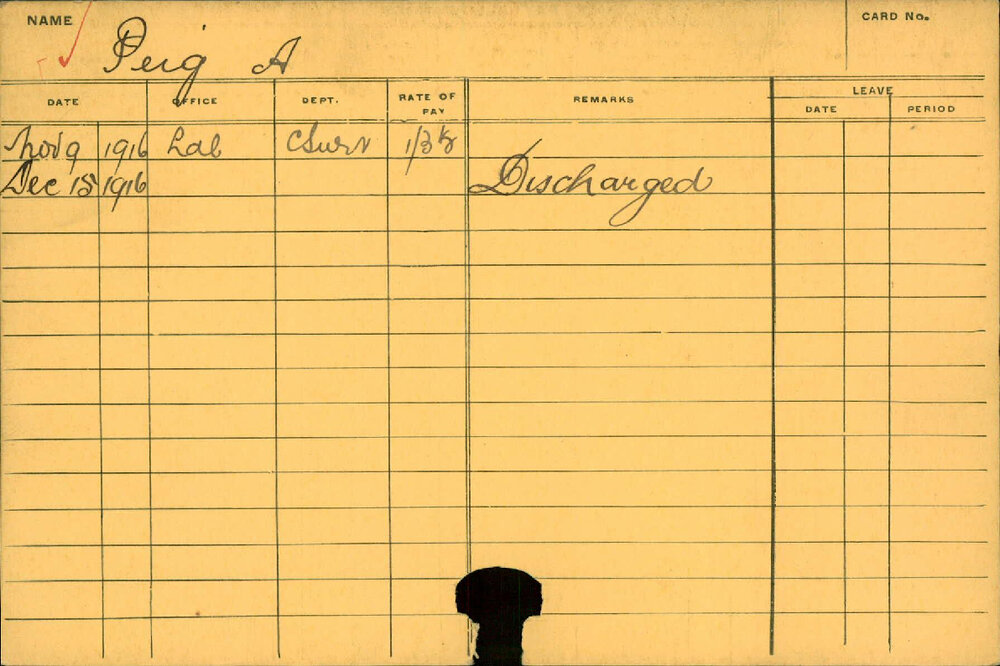 NAME
CARD No.
Peig A
DATE OFFICE DEPT. RATE OF PAY REMARKS LEAVE
DATE PERIOD
Nov 9 1916 Lab CSurv 1/3½
Dec 15 1916 Discharged